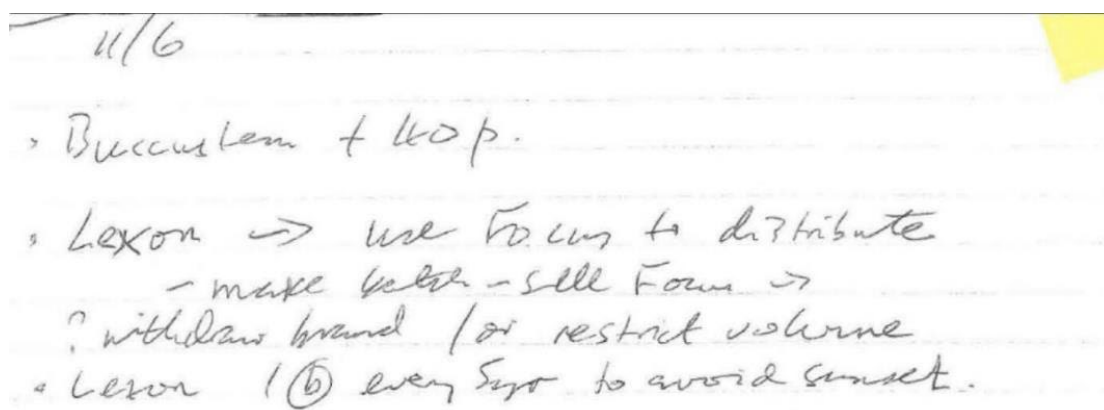 11/6
• Buccastem + 40p.
• Lexon → use Focus to distribute
- make batch - sell Focus →
? withdraw brand / or restrict volume
• Lexon 1 ⓑ every 5yr to avoid sunset.